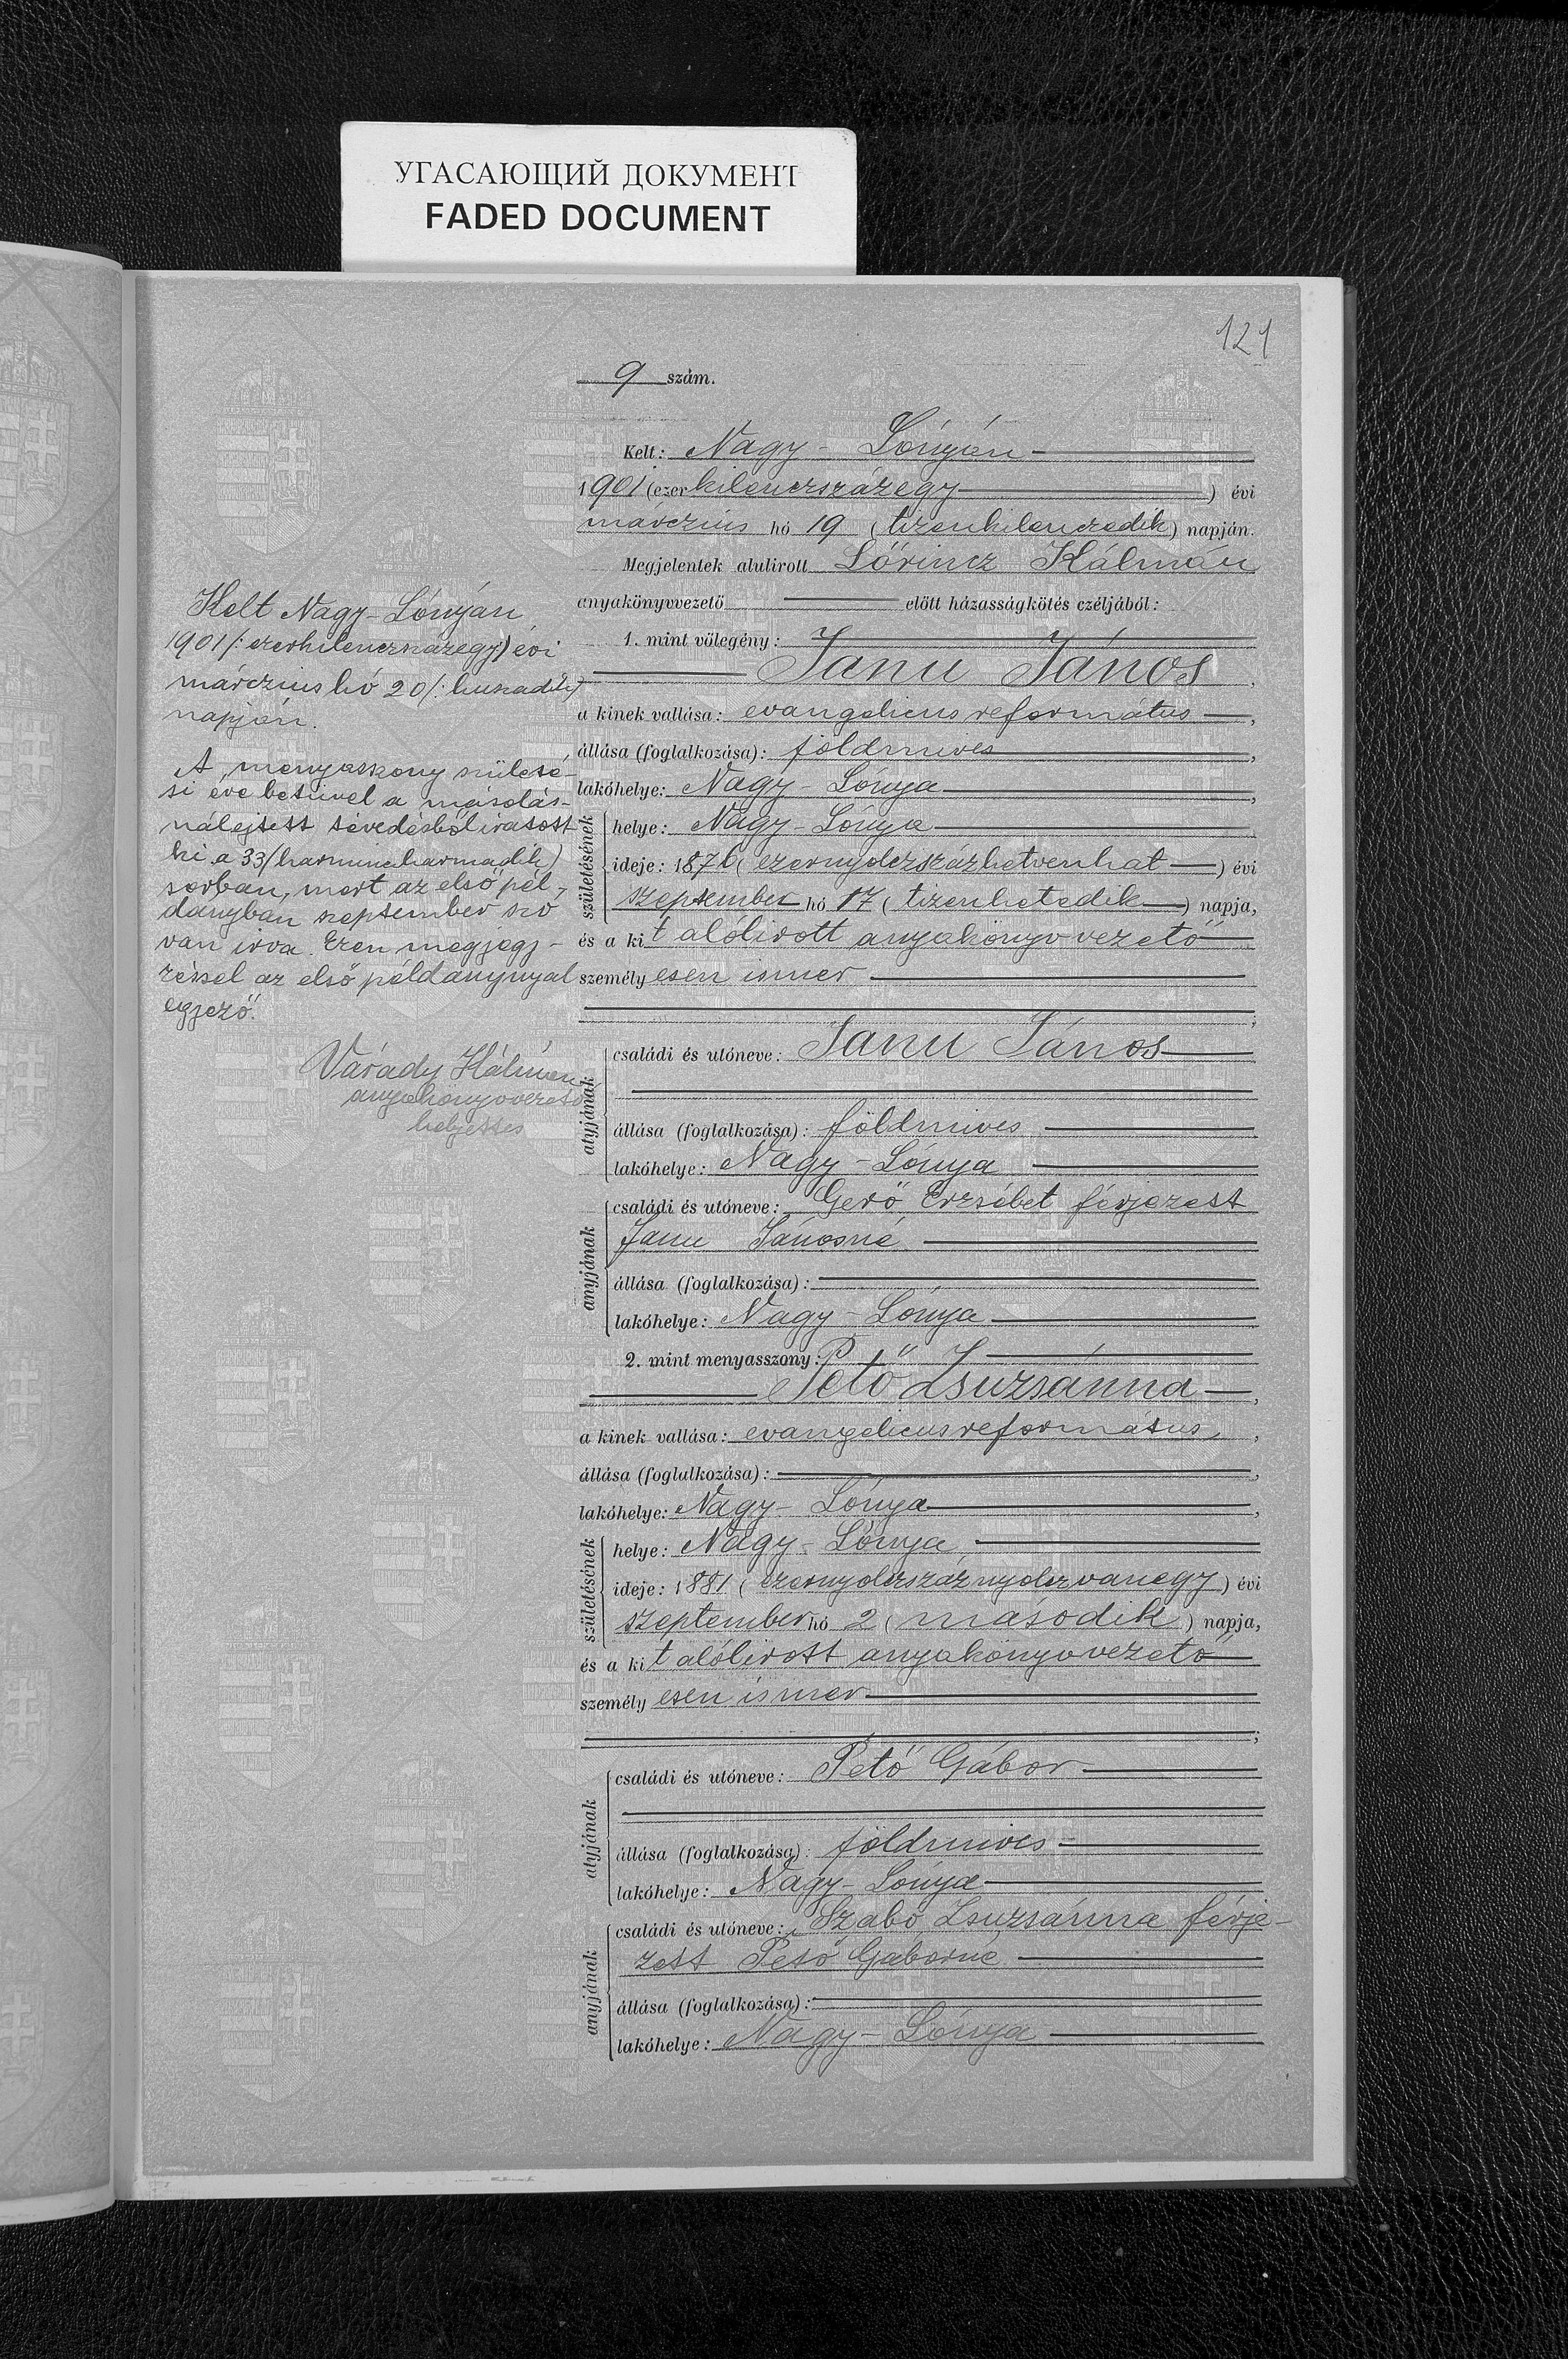 УГАСАЮЩИЙ ДОКУМЕНТ
FADED DOCUMENT
121
9 szám.
Kelt: Nagy-Lónyán
1901 (ezerkilenczszázegy) évi
márczius hó 19 (tizenkilenczedik) napján.
Megjelentek alulirott Lőrincz Kálmán
anyakönyvvezető előtt házasságkötés czéljából:
1. mint vőlegény:
Janu János,
a kinek vallása: evangelicus református,
állása (foglalkozása): földmives,
lakóhelye: Nagy-Lónya,
születésének
helye: Nagy-Lónya
ideje: 1876 (ezernyolczszázhetvenhat) évi
szeptember hó 17 (tizenhetedik) napja,
és a kit alólirott anyakönyvvezető
személyesen ismer
;
atyjának
családi és utóneve: Janu János
állása (foglalkozása): földmives
lakóhelye: Nagy-Lónya
anyjának
családi és utóneve: Gerő Erzsébet férjezett
Janu Jánosné
állása (foglalkozása):
lakóhelye: Nagy-Lónya
2. mint menyasszony:
Pető Zsuzsánna,
a kinek vallása: evangelicus református,
állása (foglalkozása):,
lakóhelye: Nagy-Lónya,
születésének
helye: Nagy-Lónya
ideje: 1881 (ezernyolczszáznyolczvanegy) évi
szeptember hó 2 (második) napja,
és a kit alólirott anyakönyvvezető
személyesen ismer
;
atyjának
családi és utóneve: Pető Gábor
állása (foglalkozása): földmives
lakóhelye: Nagy-Lónya
anyjának
családi és utóneve: Szabó Zsuzsánna férje-
zett Pető Gáborné
állása (foglalkozása):
lakóhelye: Nagy-Lónya
Kelt Nagy-Lónyán
1901 (: ezerkilenczszázegy) évi
márczius hó 20 (: huszadik)
napján.
A menyasszony születé-
si éve betüvel a másolás-
nál ejtett tévedésből iratott
ki a 33 (harminczharmadik)
sorban, mert az első pél-
dányban szeptember szó
van irva. Ezen megjegy-
zéssel az első példánynyal
egyező.
Várady Kálmán
anyakönyvvezető
helyettes